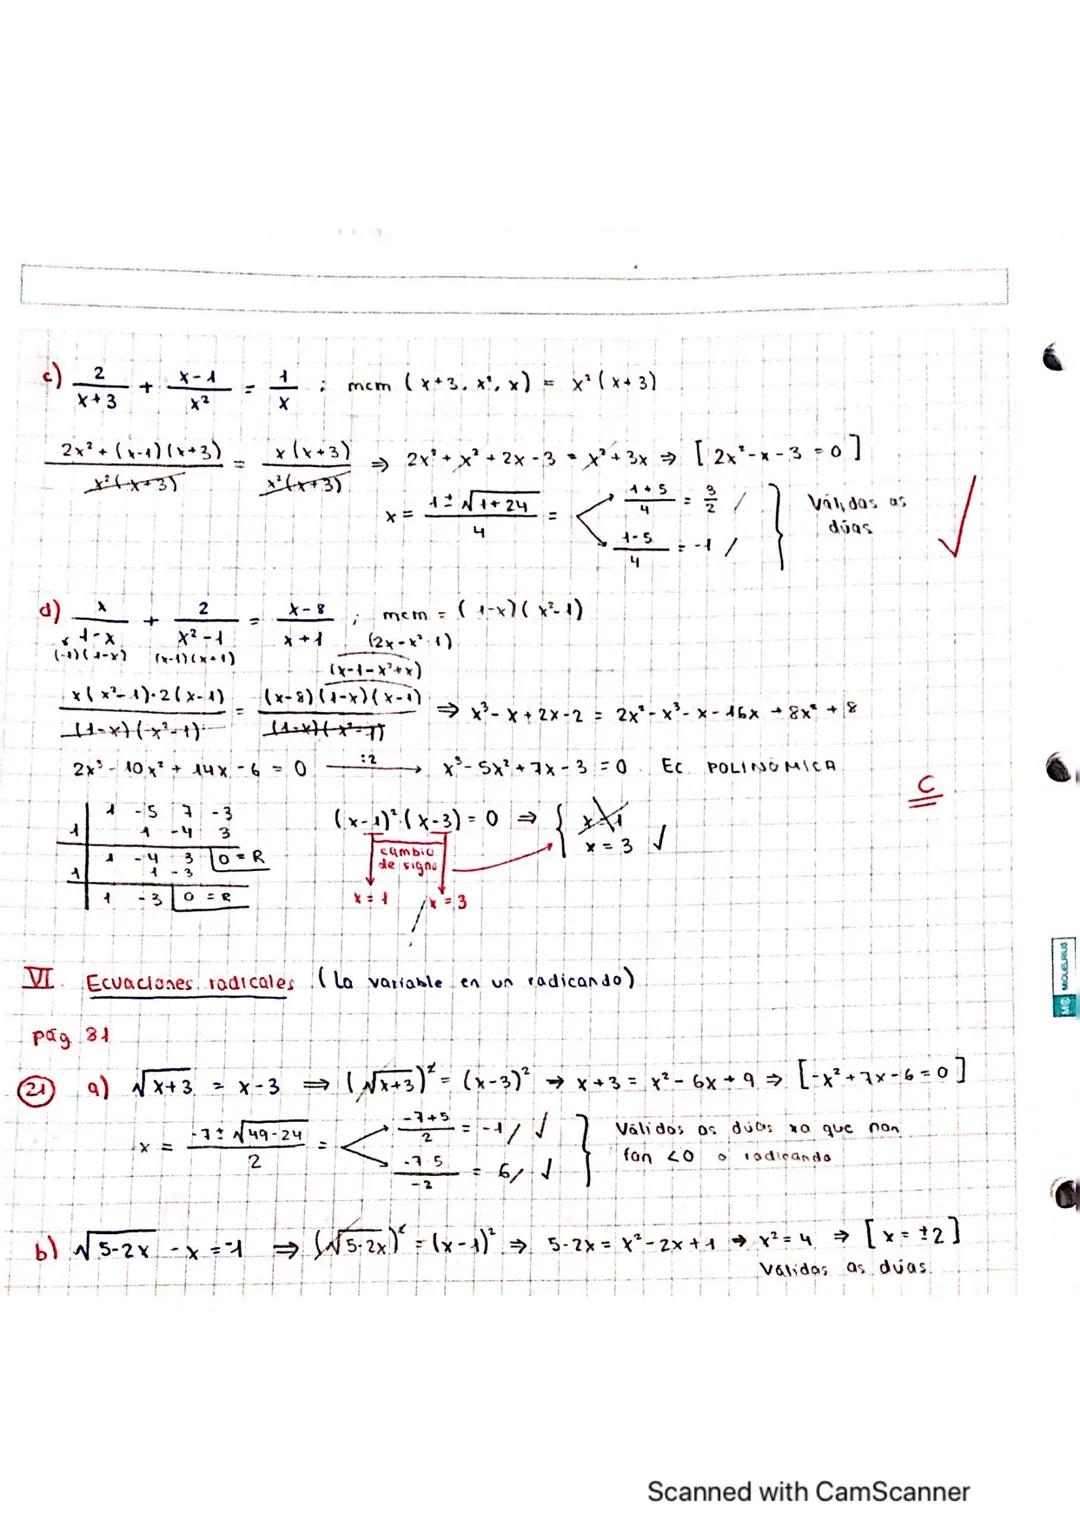 c) 2/(x+3) + (x-1)/x² = 1/x ; mcm (x+3, x², x) = x²(x+3)
(2x²+(x-1)(x+3))/(x²(x+3)) = (x(x+3))/(x²(x+3)) ⇒ 2x²+x²+2x-3 = x²+3x ⇒ [2x²-x-3=0]
x = (1±√1+24)/4 = (1+5)/4 = 3/2 /
(1-5)/4 = -1 /
Válidas as
dúas
d) x/(1-x) + 2/(x²-1) = (x-8)/(x+1) ; mcm = (1-x)(x²-1)
(-1)(1-x) (x-1)(x+1) (2x-x²-1)
(x-1-x²+x)
(x(x²-1)·2(x-1))/((1-x)(x²-1)) = ((x-8)(1-x)(x-1))/((1-x)(x²-1)) ⇒ x³-x+2x-2 = 2x²-x³-x-16x+8x²+8
2x³-10x²+14x-6=0 :2→ x³-5x²+7x-3=0. Ec POLINÓMICA
C
1 -5 7 -3
1 1 -4 3
1 -4 3 0=R
1 1 -3
1 -3 0=R
(x-1)²·(x-3)=0 ⇒ { x=1
x=3 ✓
cambio
de signo
x=1 /x=3
VI. Ecuaciones radicales (La variable en un radicando)
pág 81
21 a) √x+3 = x-3 ⇒ (√x+3)² = (x-3)² → x+3 = x²-6x+9 ⇒ [-x²+7x-6=0]
x = (-7±√49-24)/2 = (-7+5)/2 = -1/ ✓
(-7 5)/-2 = 6/ ✓
Válidas as dúas xa que non
fan <0 o radicando
b) √5-2x -x=-1 ⇒ (√5-2x)² = (x-1)² ⇒ 5-2x = x²-2x+1 → x²=4 ⇒ [x=±2]
Válidas as dúas.
MIQUELRIUS
Scanned with CamScanner